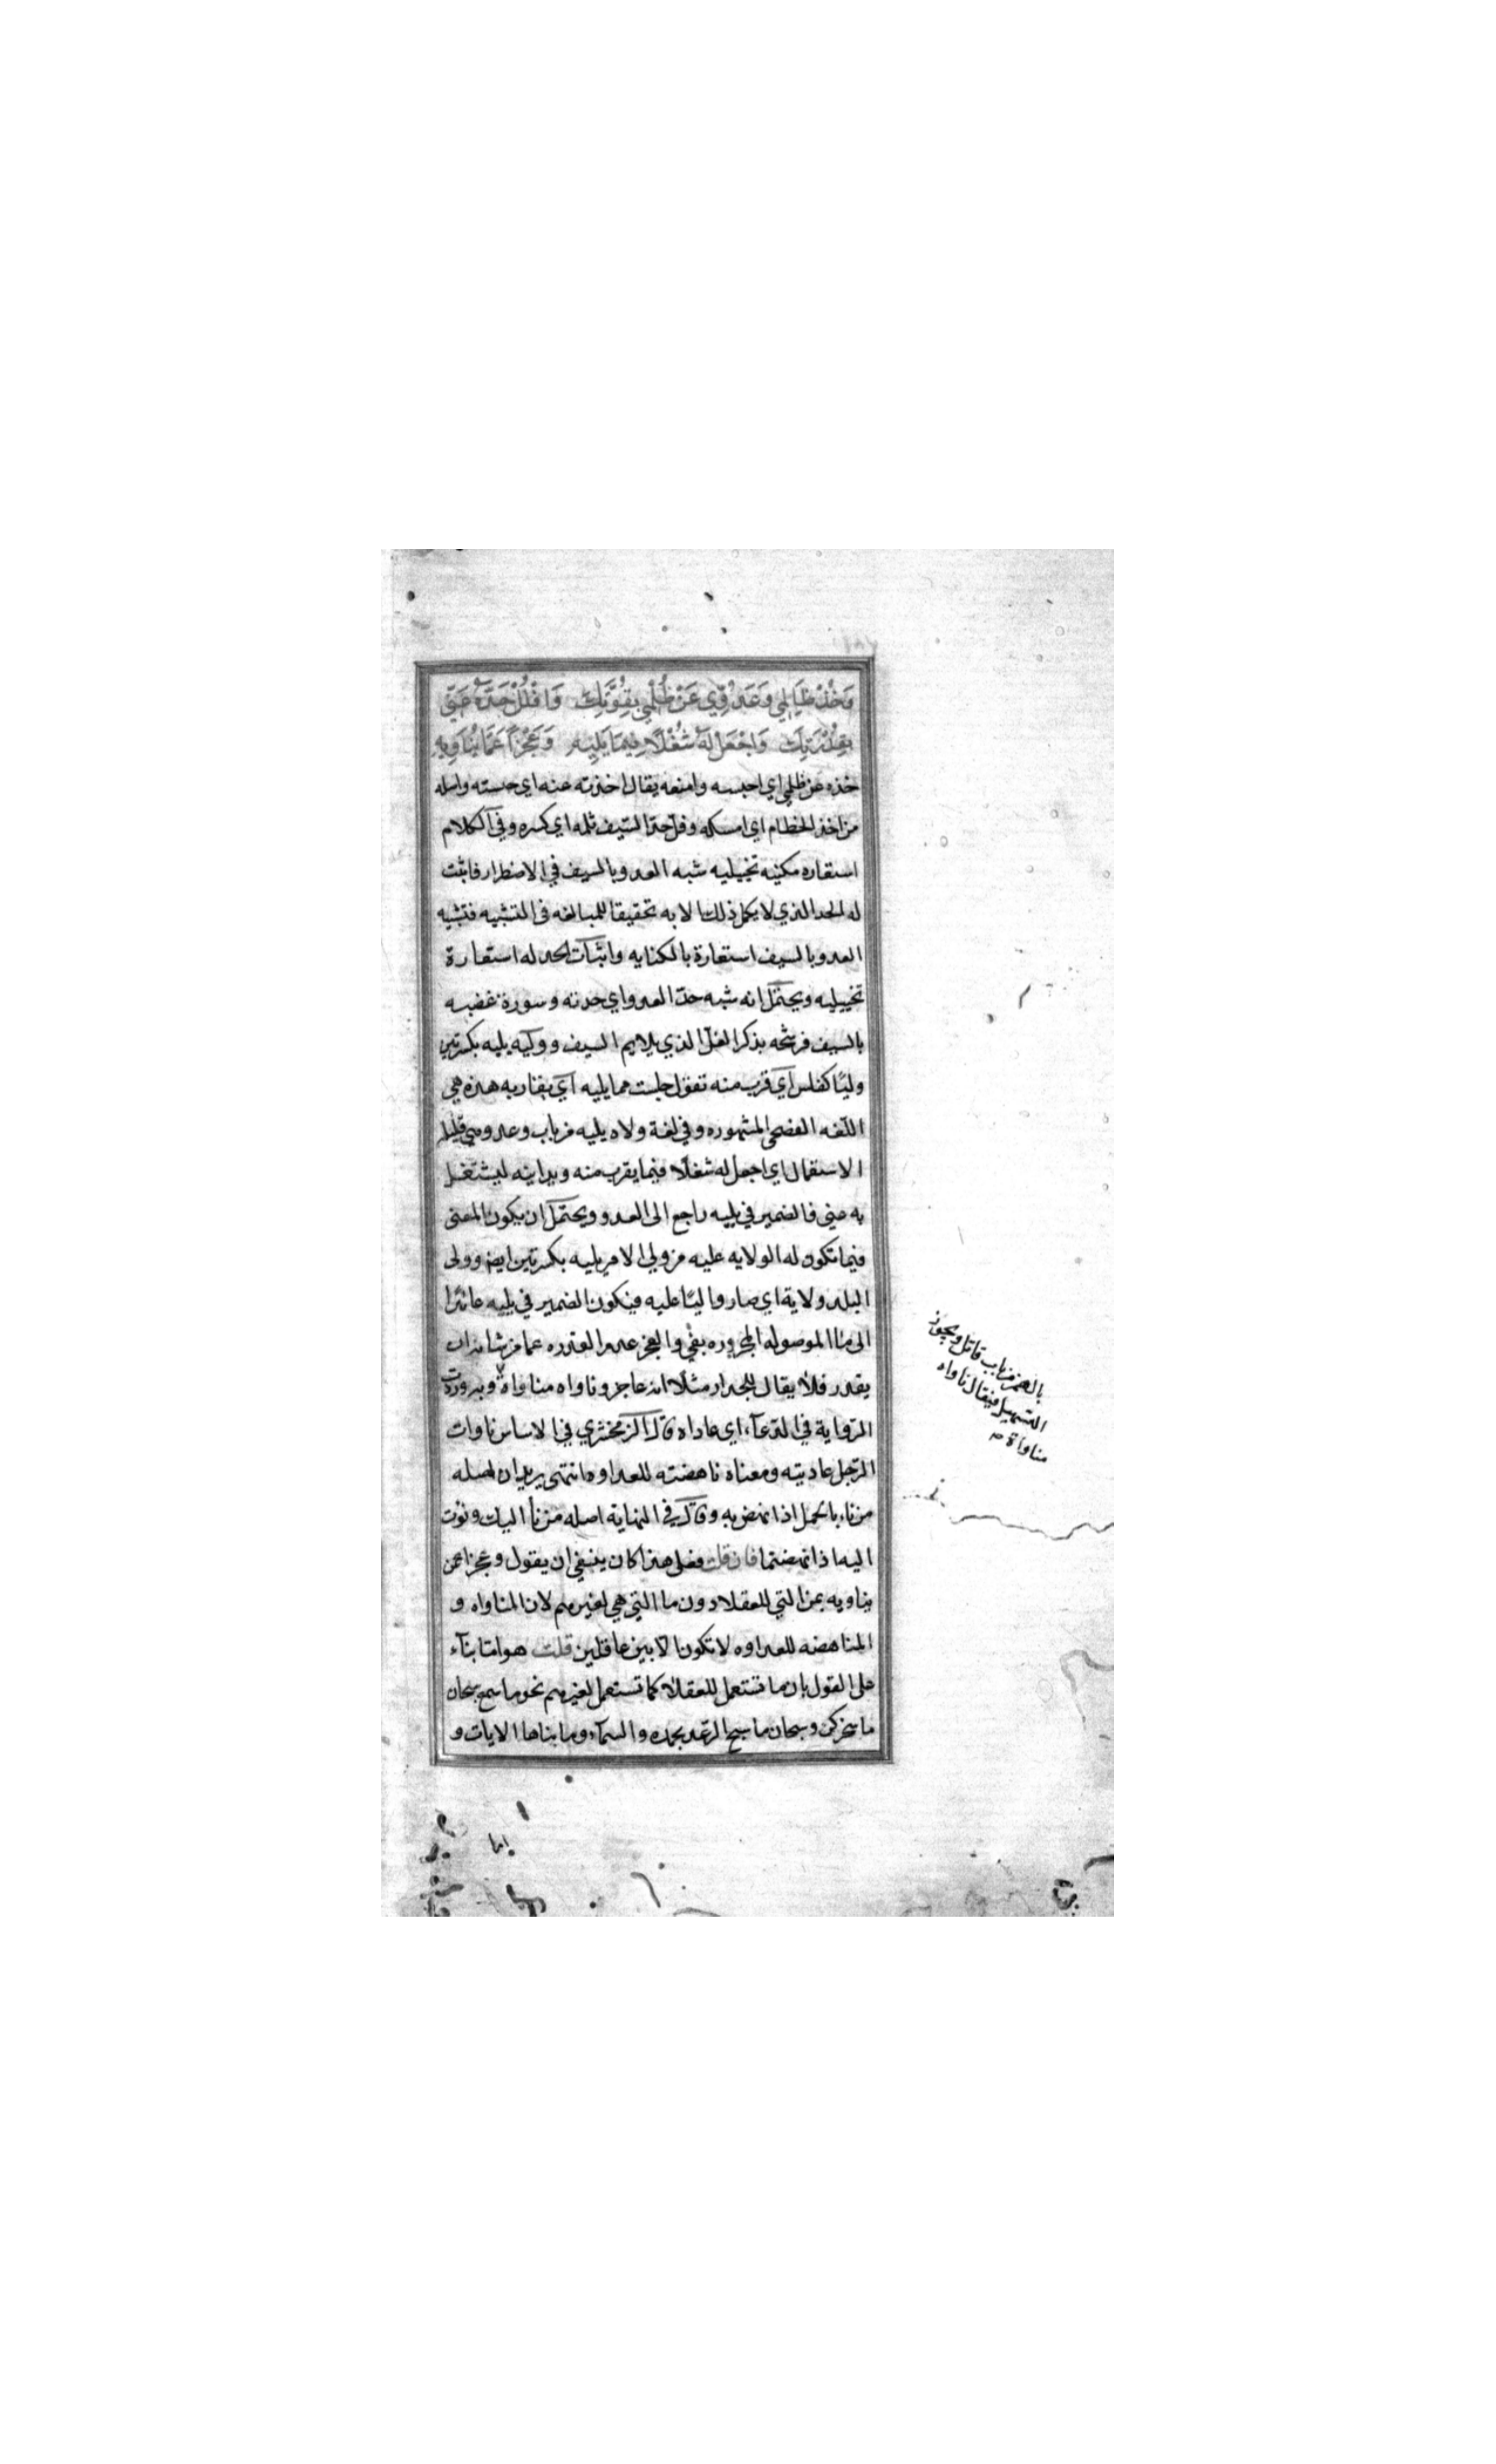 وَخُذْ ظَالِمِي وَعَدُوِّي عَنْ ظُلْمِي بِقُوَّتِكَ وَافْلُلْ حَدَّهُ عَنِّي
بِقُدْرَتِكَ وَاجْعَلْ لَهُ شُغْلًا فِيمَا يَلِيهِ وَعَجْزًا عَمَّا يُنَاوِيهِ
خذه عن ظلمي اي احبسه وامنعه يقال اخذته عنه اي حبسته واصله
من اخذ الخطام اي امسكه وفلّ حدّ السّيف ثلمه اي كسره وفي الكلام
استعاره مكنيه تخييليه شبه العدو بالسيف في الاضطرار فاثبت
له الحد الذي لا يكمل ذلك الا به تحقيقا للمبالغه فى التشبيه فتشبيه
العدو بالسيف استعارة بالكنايه واثبات الحد له استعارة
تخييليه ويحتمل انه شبه حدّ العدو اي حدته وسورة غضبه
بالسيف فرشحه بذكر الفلّ الذي يلايم السيف ووليه يليه بكسرتين
وليًا كفلس اي قرب منه تقول جلست مما يليه اي يقاربه هذه هي
اللّغه الفصحى المشهوره وفي لغة ولاه يليه من باب وعد وهي قليله
الاستعمال اي اجعل له شغلًا فيما يقرب منه ويدانيه ليشتغل
به عني فالضمير في يليه راجع الى العدو ويحتمل ان يكون المعنى
فيما تكون له الولايه عليه من ولي الامر يليه بكسرتين ايضا وولى
البلد ولاية اي صار واليًا عليه فيكون الضمير في يليه عائدًا
الى ما الموصوله المجروره بفي والعجز عدم القدره عما من شانه ان
يقدر فلا يقال للجدار مثلًا انه عاجز وناواه مناواة وبه وردت
الرّواية في الدّعآء اي عاداه قال الزمخشري في الاساس ناوات
الرّجل عاديته ومعناه ناهضته للعداوه انتهى يريد ان اصله
من ناء بالحمل اذا نهض به وقال في النهاية اصله من نأ اليك ونؤت
اليه اذا نهضتما فان قلت فعلى هذا كان ينبغي ان يقول وعجزا عمن
يناويه بمن التي للعقلا دون ما التي هي لغيرهم لان المناواه و
المناهضه للعداوه لا تكون الّا بين عاقلين قلت هو امّا بنآء
على القول بان ما تستعمل للعقلا كما تستعمل لغيرهم نحو ما سمع سبحان
ما سخركن وسبحان ما سبح الرّعد بحمده والسمآء وما بناها الايات و
بالهمز من باب قاتل ويجوز
التسهيل فيقال ناواه
مناواة م